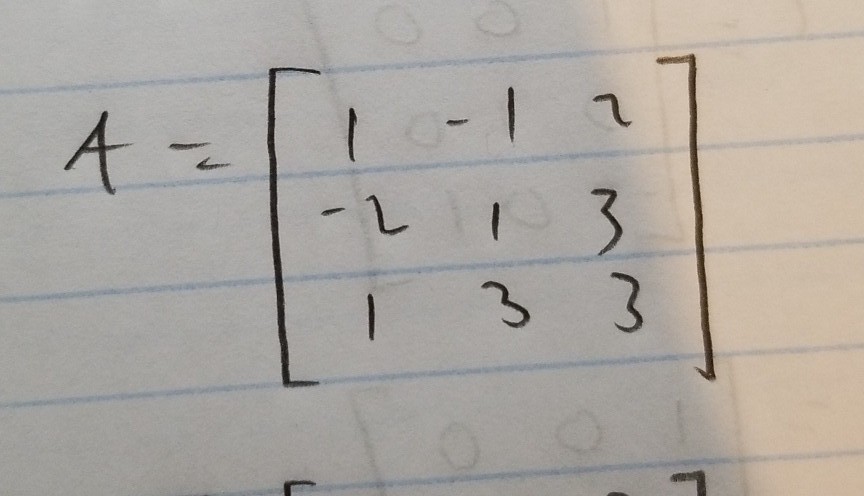 A = [ 1 -1 2
-2 1 3
1 3 3 ]